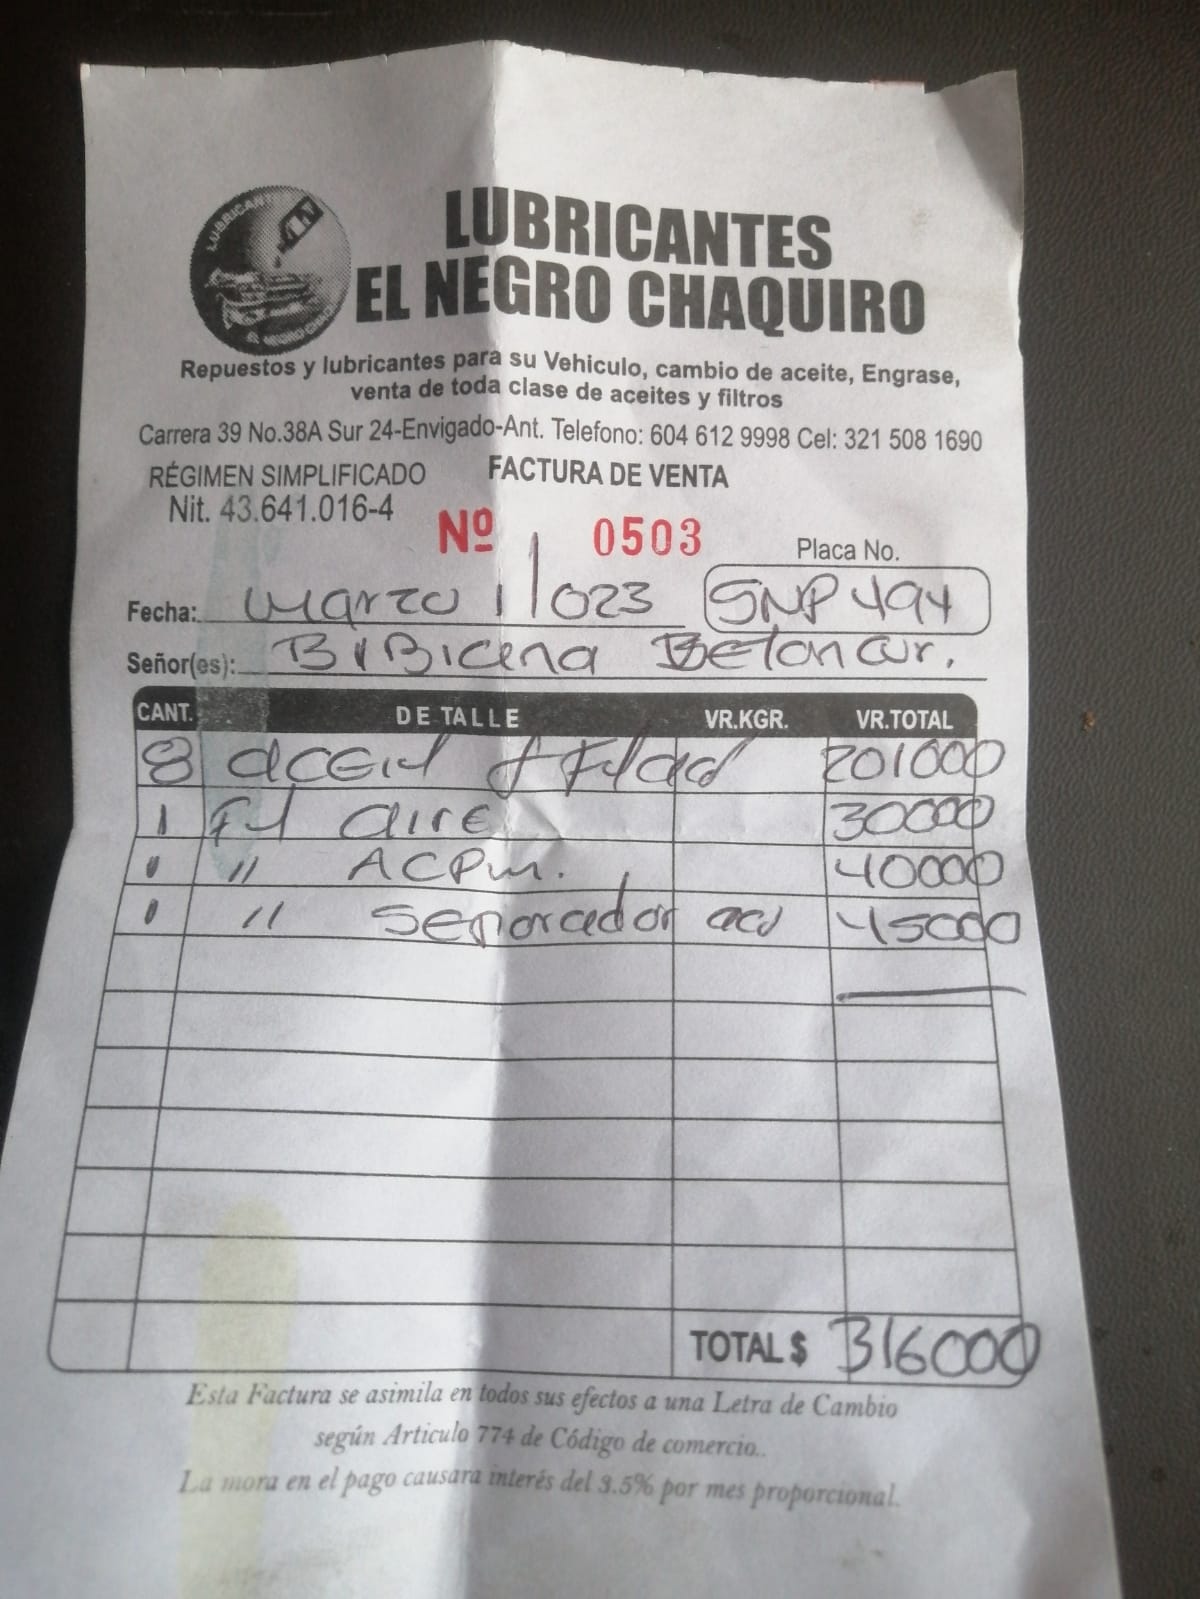 LUBRICANTES
EL NEGRO CHAQUIRO
Repuestos y lubricantes para su Vehiculo, cambio de aceite, Engrase,
venta de toda clase de aceites y filtros
Carrera 39 No.38A Sur 24-Envigado-Ant. Telefono: 604 612 9998 Cel: 321 508 1690
RÉGIMEN SIMPLIFICADO FACTURA DE VENTA
Nit. 43.641.016-4
Nº 0503
Placa No.
Fecha: Marzo 1/023 SNP494
Señor(es): BiBiana Betancur.
CANT. DETALLE VR.KGR. VR.TOTAL
8 201000
1 Fil aire 30000
1 " ACPm. 40000
1 " 45000
TOTAL $ 316000
Esta Factura se asimila en todos sus efectos a una Letra de Cambio
según Articulo 774 de Código de comercio..
La mora en el pago causara interés del 3.5% por mes proporcional.